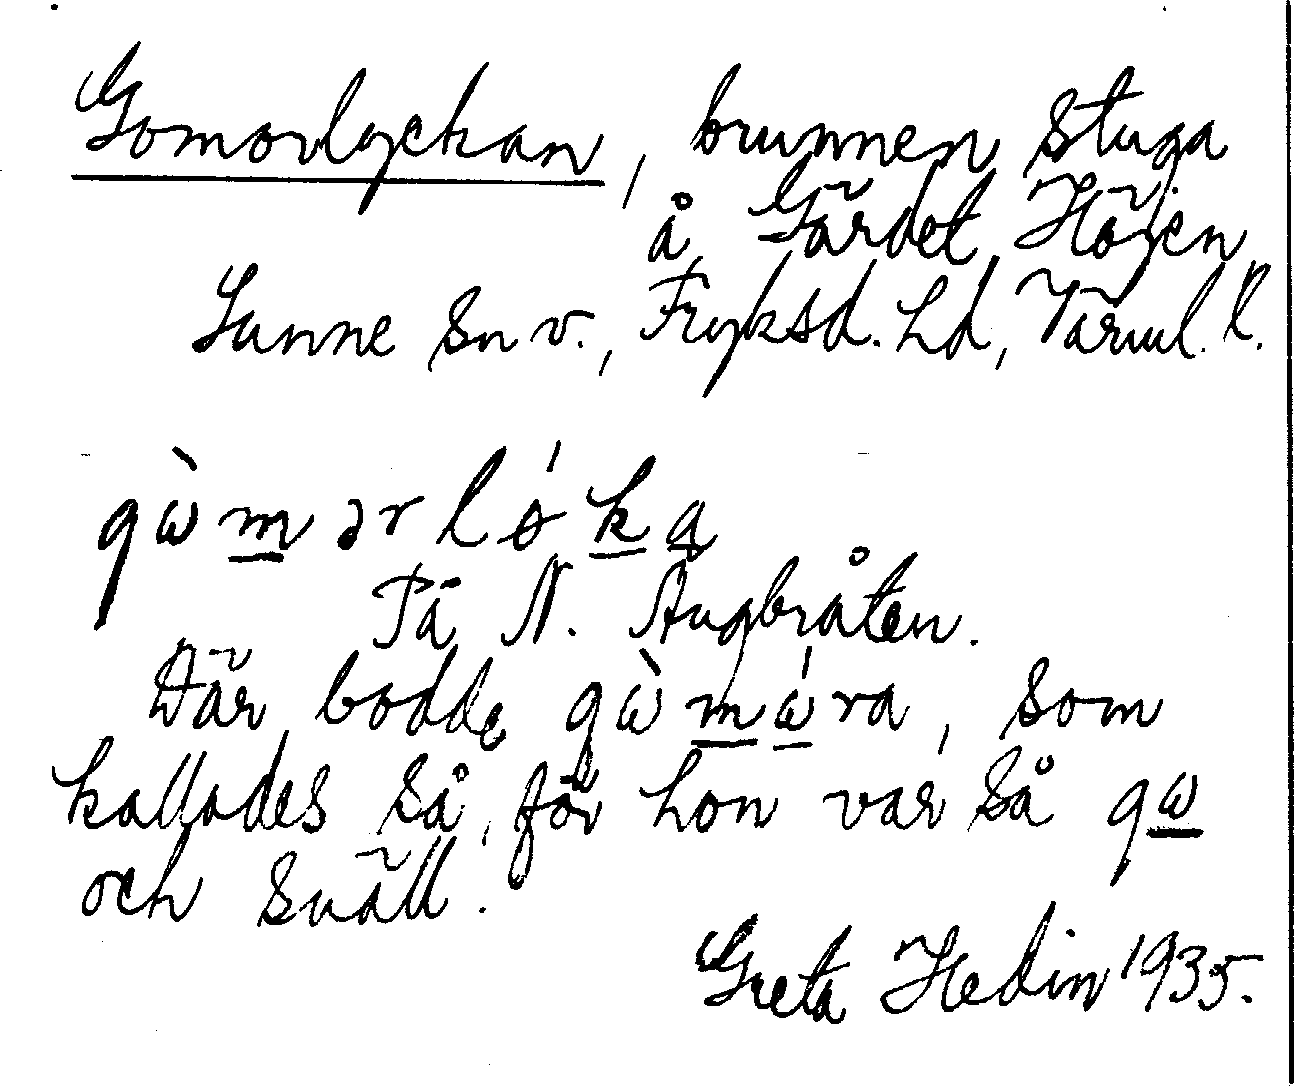 Gomorlyckan, brunnen stuga
å Gärdet Höjen
Sunne sn v., Fryksd. hd, Värml. l.
gὼmərlǿka
På N. Ängbråten.
Där bodde gὼmώra, som
kallades så, för hon var så gω
och snäll.
Greta Hedin 1935.